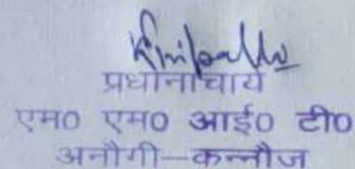 प्रधानाचार्य
एम0 एम0 आई0 टी0
अनौगी–कन्नौज